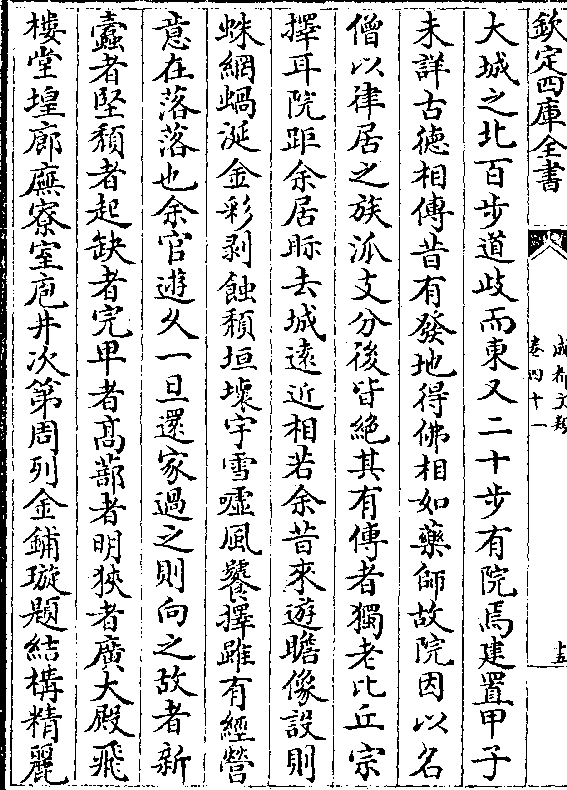 欽定四庫全書
成都文類
卷四十一
十五
大城之北百步道歧而東又二十步有院焉建置甲子
未詳古德相傳昔有發地得佛相如藥師故院因以名
僧以律居之族泒支分後皆絕其有傳者獨老比丘宗
擇耳院距余居眎去城遠近相若余昔來遊瞻像設則
蛛網蝸涎金彩剥蝕頽垣壊宇雪嘘風饕擇雖有經營
意在落落也余官逰久一旦還家過之則向之故者新
蠹者堅頽者起缺者完卑者髙蔀者明狹者廣大殿飛
樓堂堭廊廡寮室庖井次第周列金鋪璇題結構精麗